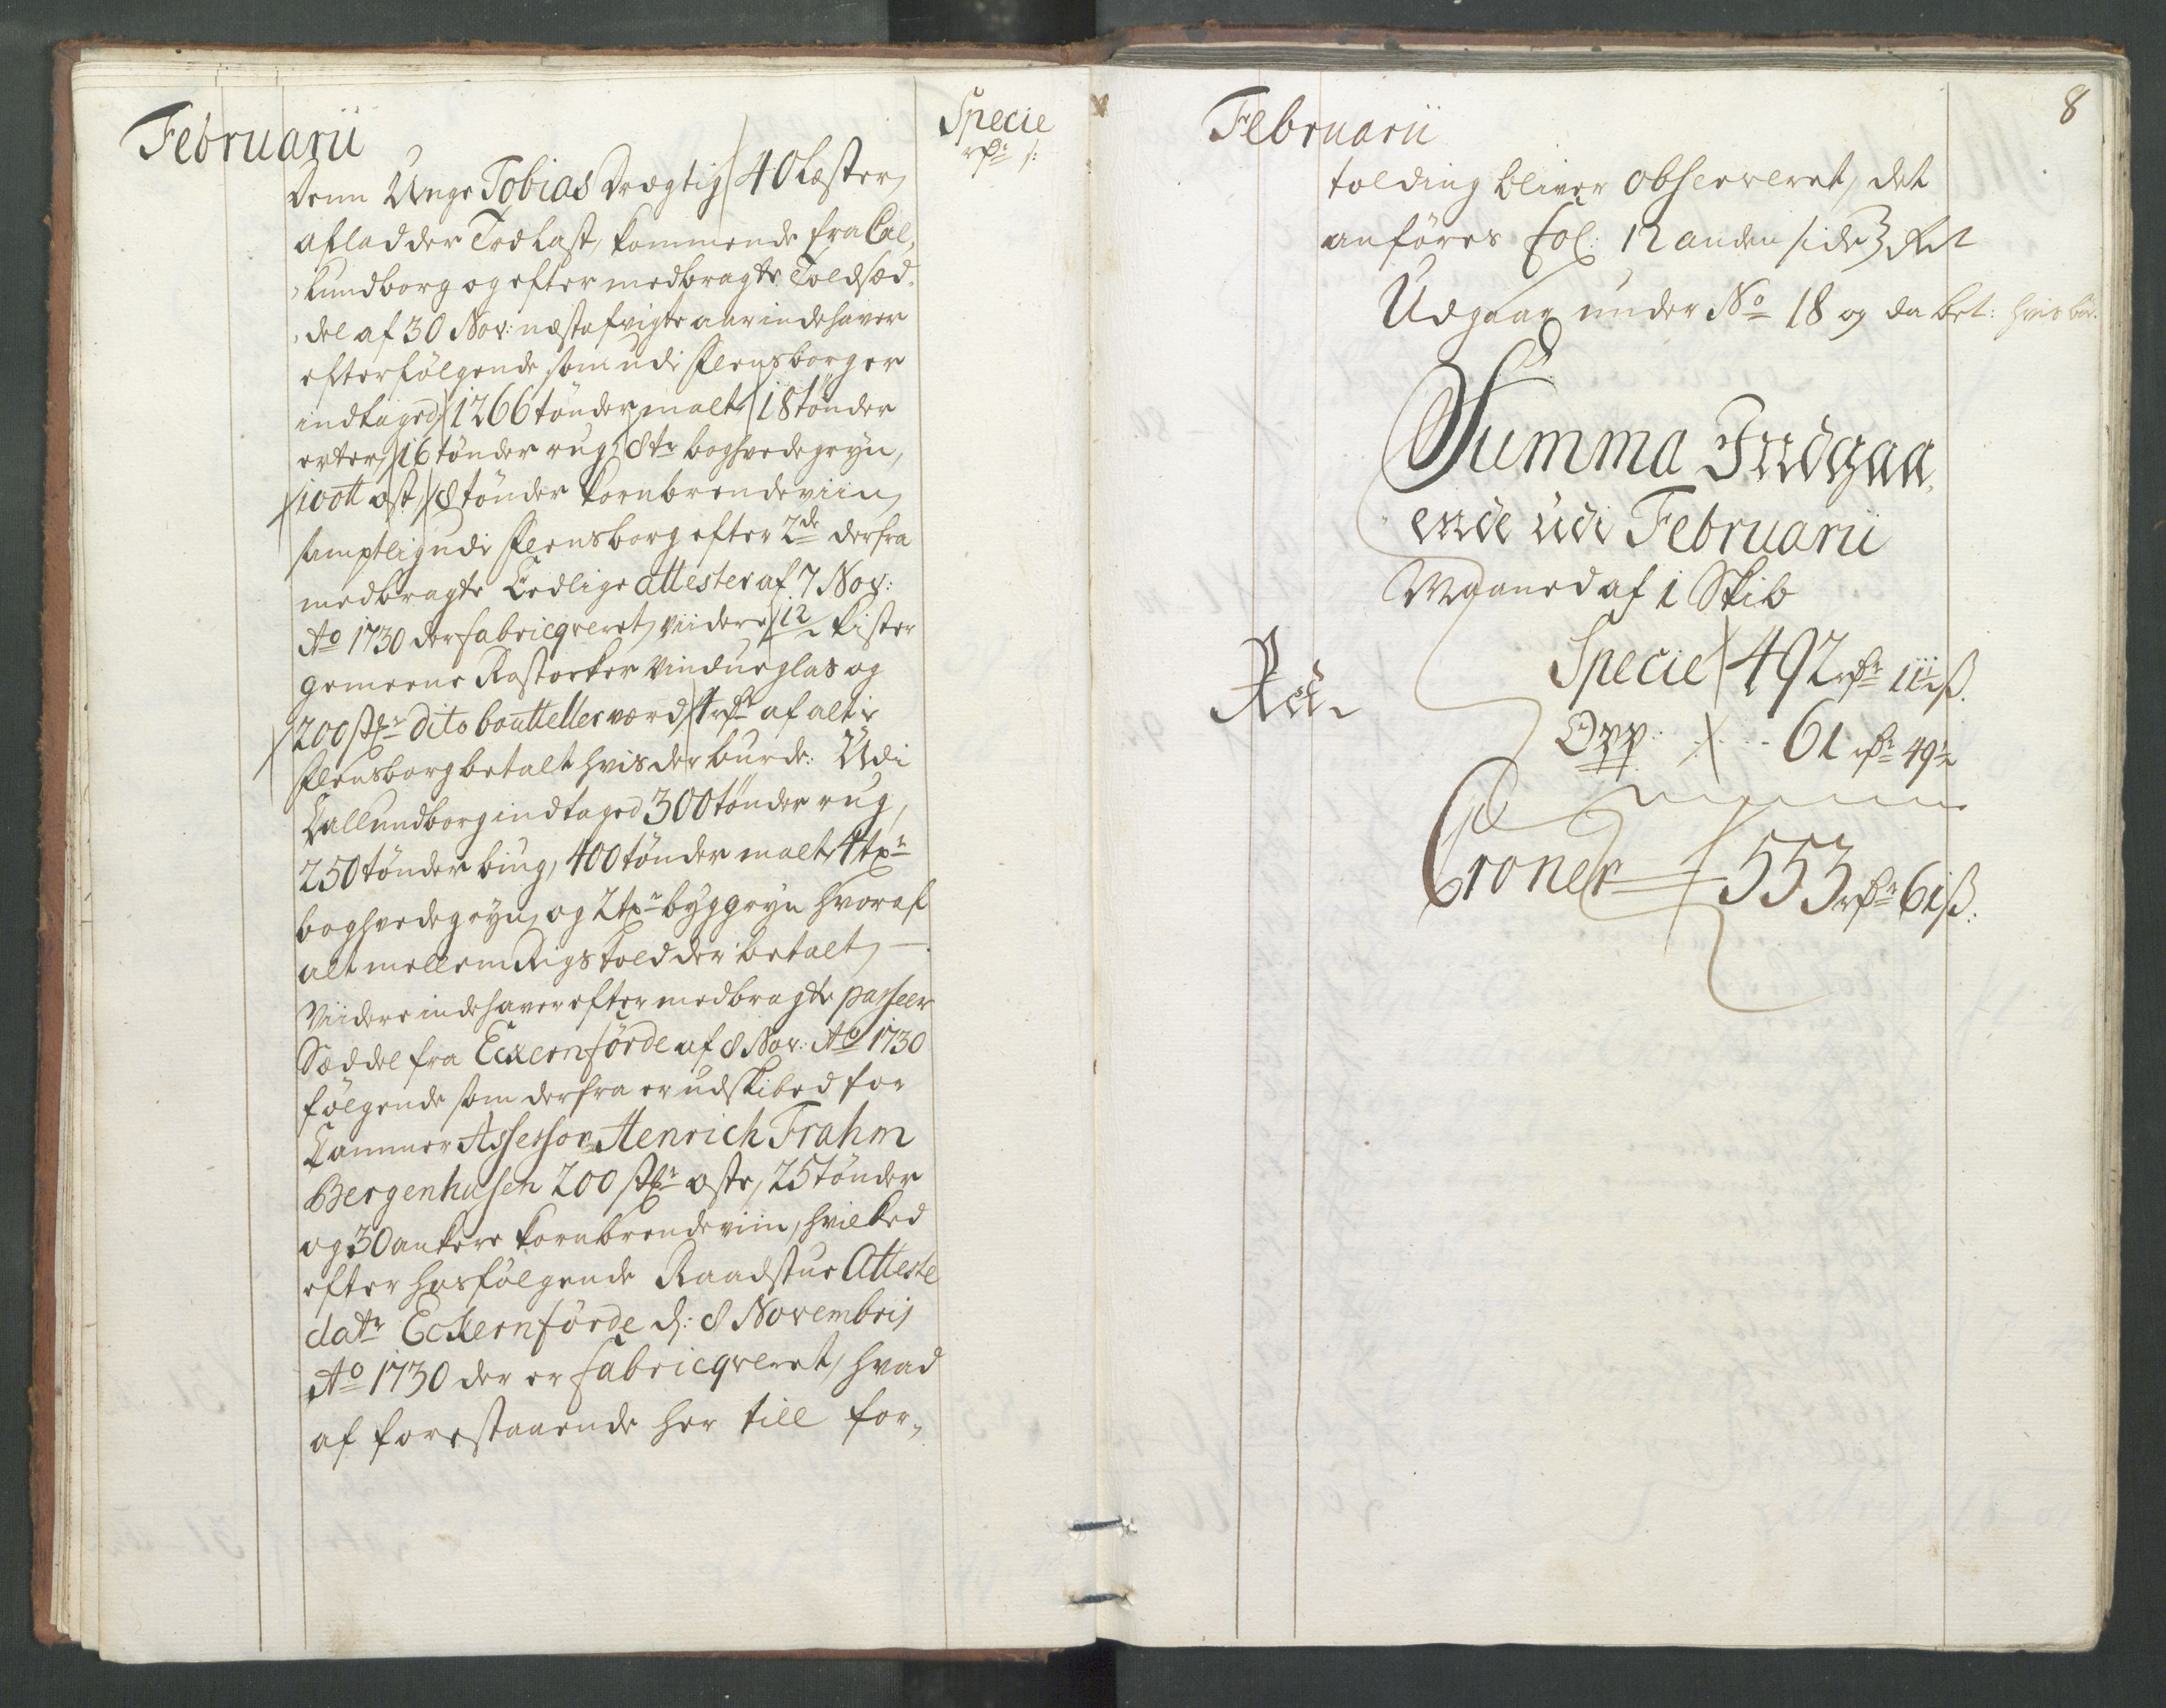 Februarii
Specie
rdr s:
Denn Unge Tobias Drægtig 40 Læster,
aflad der Træ Last, kommende fra Cal,
lundborg og efter medbragte Toldsæd,
del af 30 Nov: næstafvigte aar indehaver
efterfølgende som udi Flensborg er
indtaged 1266 tønder malt, 18 tønder
erter, 16 tønder rug, 8 tr boghvedegryn,
100 ost, 8 tønder kornbrendeviin,
samptlig udi Flensborg efter 2de derfra
medbragte Eedlige attester af 7 Nov:
Ao 1730 der fabricqveret, viidere 12 kister
gemeene Rostocker vindueglas og
200 stkr dito boutteller værd 4 rdr af alt i
Flensborg betalt hvis der burde: Udi
Callundborg indtaged 300 tønder rug,
250 tønder biug, 400 tønder malt, 4 tr
boghvedegryn, og 2 tr byggryn hvoraf
alt mellem Rigs told der betalt,
Viidere indehaver efter medbragte passeer
Sæddel fra Eckernförde af 8 Nov: Ao 1730
følgende som derfra er udskibed for
Cammer Assessor Henrich Frahm
Bergenhusen 200 stkr oste, 25 tønder
og 30 ankere kornbrendeviin, hvilked
efter hosfølgende Raadstue Atteste
datr Eckernförde d: 8 Novembris
Ao 1730 der er fabricqveret, hvad
af forestaaende her till for,
8
Februarii
tolding bliver observeret, det
anføres fol: 12 anden side
Udgaar under No 18 og da bet: hvis bør.
Summa Indgaa,
ende udi Februarii
Maaned af 1 Skib
Specie 492 rdr 11½ ß.
Opp: 61 rdr 49½
Croner 553 rdr 61 ß: